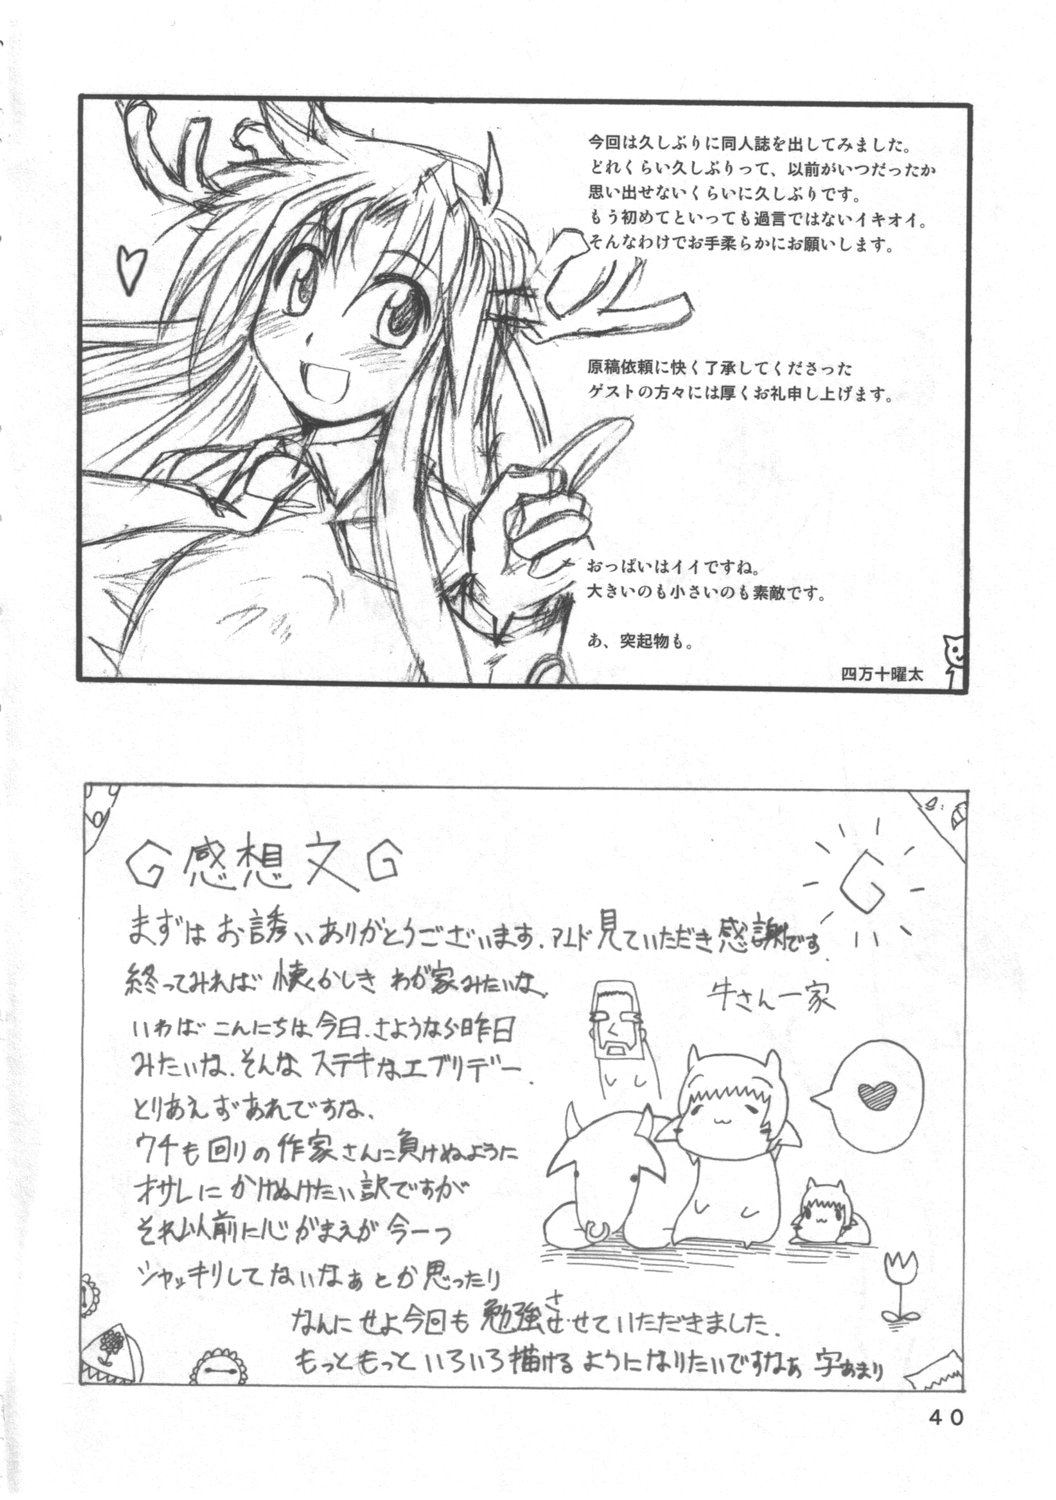 今回は久しぶりに同人誌を出してみました。
どれくらい久しぶりって、以前がいつだったか
思い出せないくらいに久しぶりです。
もう初めてといっても過言ではないイキオイ。
そんなわけでお手柔らかにお願いします。
原稿依頼に快く了承してくださった
ゲストの方々には厚くお礼申し上げます。
おっぱいはイイですね。
大きいのも小さいのも素敵です。
あ、突起物も。
四万十曜太
G感想文G
まずはお誘いありがとうございます.アンド見ていただき感謝です.
終ってみれば懐かしき わが家みたいな、
いわば こんにちは今日、さようなら昨日
みたいな、そんな ステキなエブリデー.
とりあえずあれですな、
ウチも回りの作家さんに負けぬように
オサレに かけぬけたい訳ですが
それ以前に心がまえが今一つ
シャッキリしてないなぁとか思ったり
なんにせよ今回も勉強させていただきました.
もっともっといろいろ描けるようになりたいですなぁ 字あまり
G
牛さん一家
40